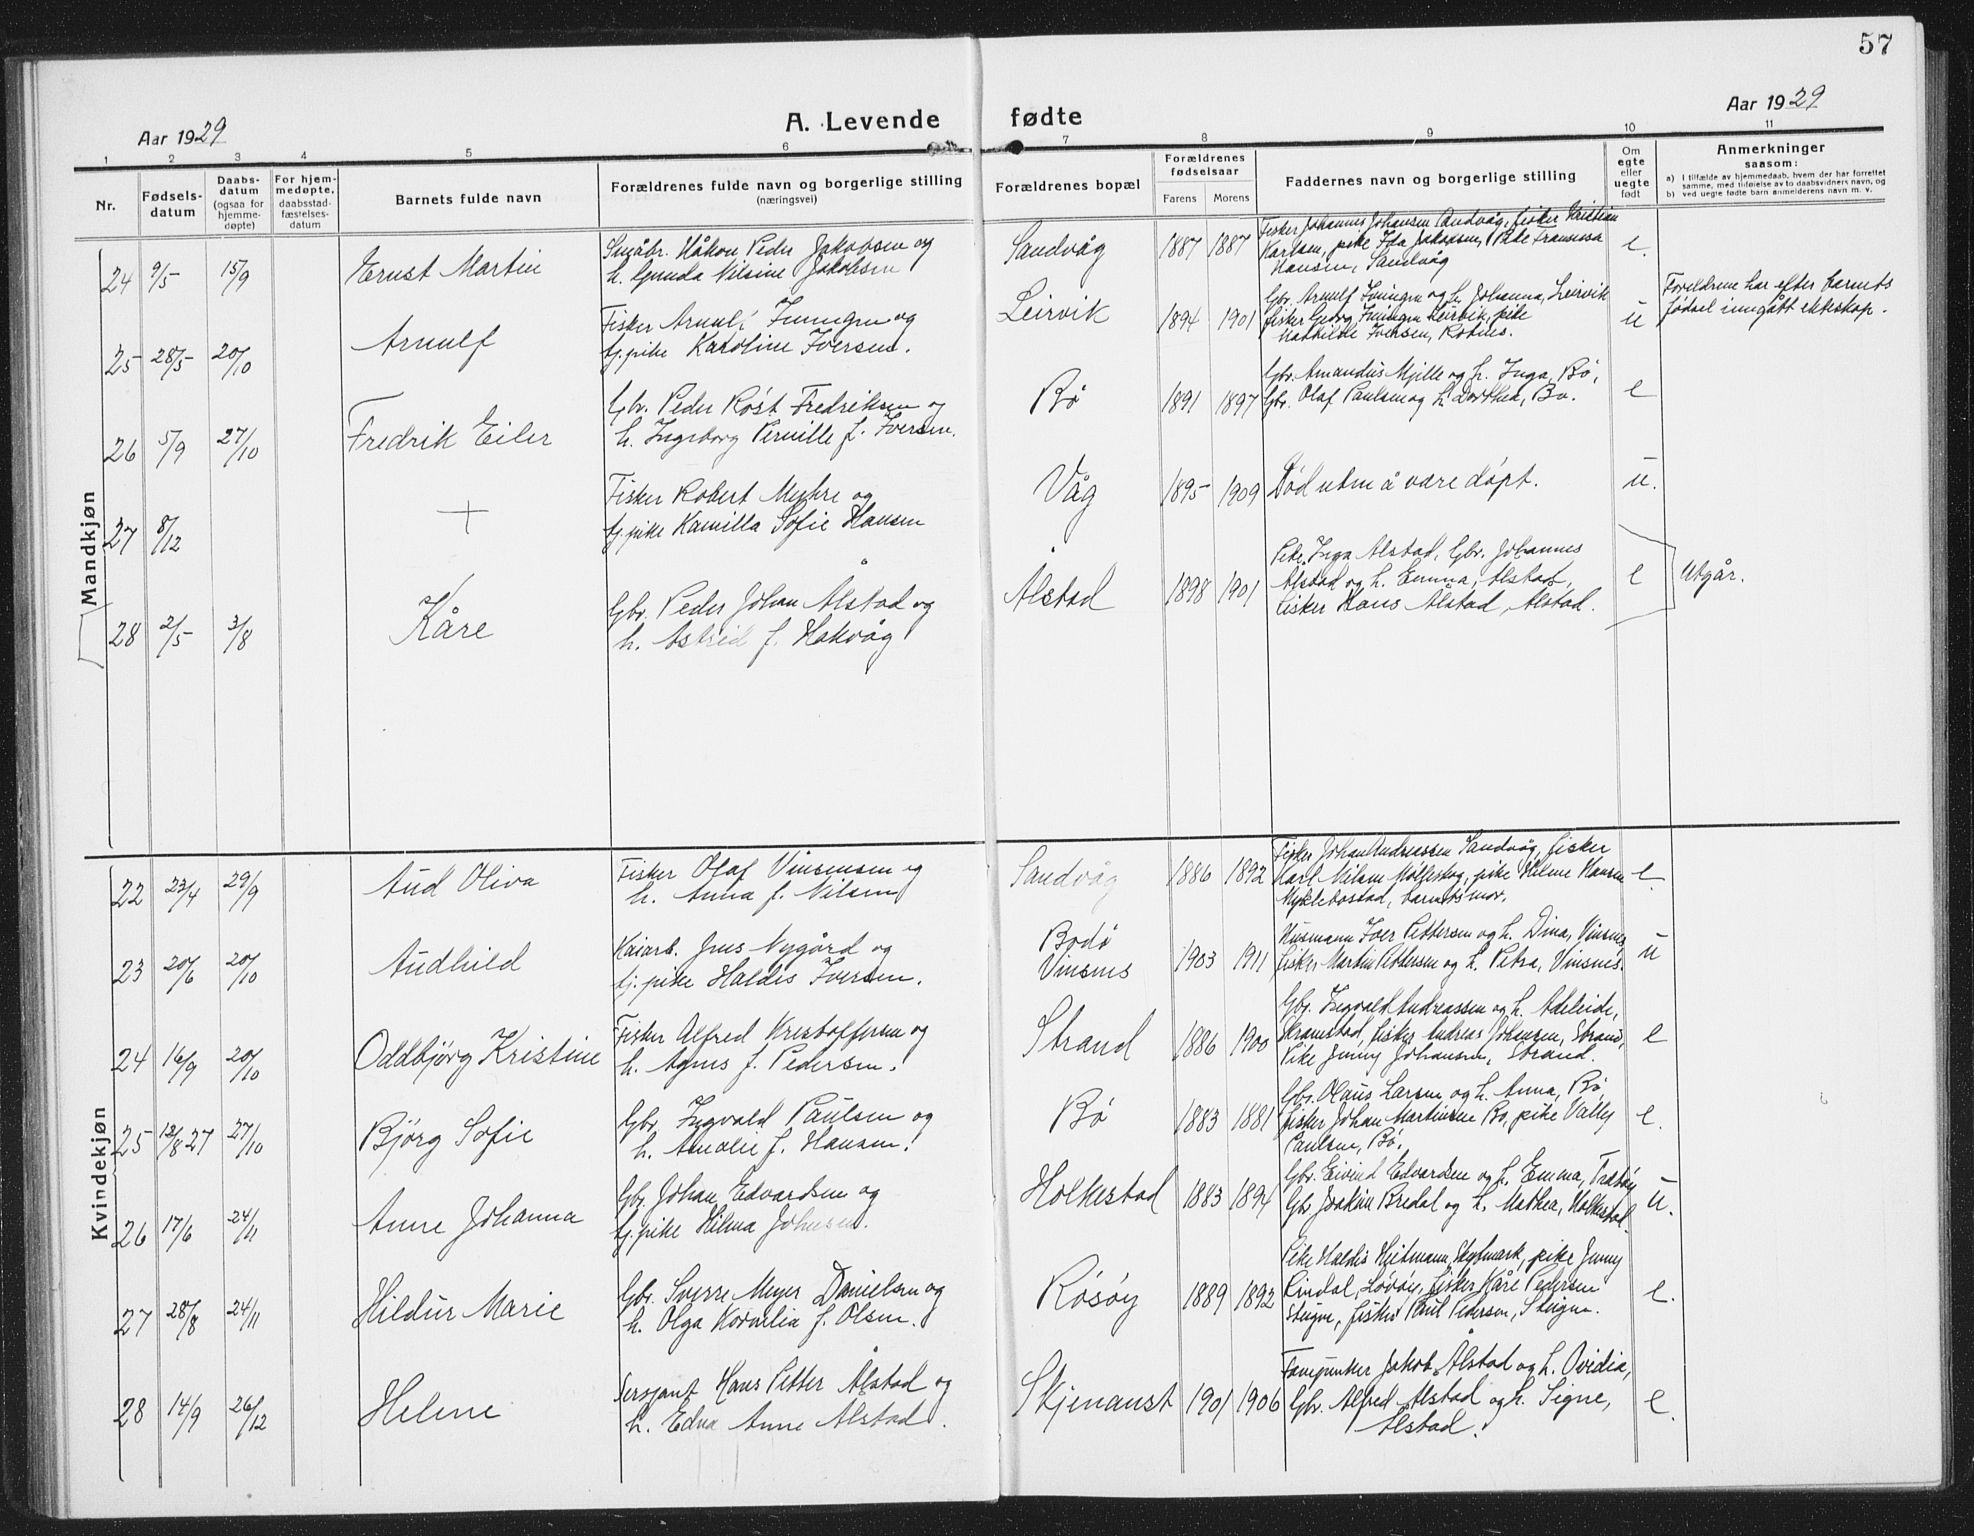 57
Aar 1929
A. Levende fødte
Aar 1929
1 2 3 4 5 6 7 8 9 10 11
Nr.
Fødsels-
datum
Daabs-
datum
(ogsaa for
hjemme-
døpte)
For hjem-
medøpte,
daabsstad-
fæstelses-
datum
Barnets fulde navn
Forældrenes fulde navn og borgerlige stilling
(næringsvei)
Forældrenes bopæl
Forældrenes
fødselsaar
Farens Morens
Faddernes navn og borgerlige stilling
Om
egte
eller
uegte
født
Anmerkninger
saasom:
a) I tilfælde av hjemmedaab, hvem der har forrettet
samme, med tilføielse av to daabsvidners navn, og
b) ved uegte fødte barn anmelderens navn m. v.
Mandkjøn
24 9/5 15/9 Ernst Martin
Småbr. Håkon Peder Jakobsen og
h. Gunda Nilsine Jakobsen
Sandvåg 1887 1887
Fisker Johannes Johansen Sandvåg, fisker Kristian
Karlsen, pike Ida Jakobsen, Pike Fransissa
Hansen, Sandvåg
e.
25 28/5 20/10 Arnulf
Fisker Arnulf Iveingen og
tj. pike Karoline Iversen.
Leirvik 1894 1901
Gbr. Arnulf og h. Johanna, Leirvik
fisker Georg Leirvik, pike
Mathilde Iversen,
u
Foreldrene har efter barnets
fødsel inngått ekteskap.
26 5/9 27/10 Fredrik Eiler
Gbr. Peder Röst Fredriksen og
h. Ingeborg Pernille f. Iversen.
Bö 1891 1897
Gbr. Amandus Mjelle og h. Inga, Bö,
Gbr. Olaf Paulsen og h. Dorthea, Bö.
e
27 8/12 +
Fisker Robert Myhre og
tj. pike Kamilla Sofie Hansen
Våg 1895 1909
Död uten å være döpt.
u.
28 2/5 3/8 Kåre
Gbr. Peder Johan Ålstad og
h. Astrid f. Hakvåg
Ålstad 1898 1901
Pike Inga Alstad, Gbr. Johannes
Alstad og h. Emma, Alstad,
fisker Hans Alstad, Alstad.
e
Utgår.
Kvindekjøn
22 23/4 29/9 Aud Oliva
Fisker Olaf Vinsensen og
h. Anna f. Nilsen
Sandvåg 1886 1892
Fisker Johan Andreassen Sandvåg, fisker
Karl Nilsen pike Hilma Hansen
Myklebostad, barnets mor.
e.
23 20/6 20/10 Audhild
Kaiarb. Jens Nygård og
tj. pike Haldis Iversen.
Bodö
Vinsnes
1903 1911
Husmann Iver Pettersen og h. Dina, Vinsnes
fisker Martin Pettersen og h. Petra, Vinsnes.
u
24 16/9 20/10 Oddbjörg Kristine
Fisker Alfred Kristoffersen og
h. Agnes f. Pedersen.
Strand 1886 1900
Gbr. Ingvald Andreassen og h. Adeleide,
Skramstad, fisker Andreas Johansen, Strand,
Pike Jenny Johansen, Strand.
e
25 12/8 27 27/10 Björg Sofie
Gbr. Ingvald Paulsen og
h. Amalie f. Hansen.
Bö 1883 1881
Gbr. Olaus Larsen og h. Anna, Bö,
fisker Johan Martinsen Bö, pike Vally
Paulsen, Bö.
e.
26 17/6 24/11 Anne Johanna
Gbr. Johan Edvardsen og
tj. pike Hilma Johnsen.
Holkestad 1883 1894
Gbr. Eivind Edvardsen og h. Emma, Tranöy
Gbr Joakim Bredal og h. Mathea, Holkestad.
u.
27 28/8 24/11 Hildur Marie
Gbr. Sverre Meyer Danielsen og
h. Olga Kornelia f. Olsen.
Rösöy 1889 1892
Pike Haldis Heitmann, pike Jenny
Lindal, Lövöy, fisker Kåre Pedersen
Steigen, fisker Paul Pedersen, Steigen.
e.
28 14/9 26/12 Helene
Sersjant Hans Petter Alstad og
h. Edva Anne Alstad.
Skjenanset 1901 1906
Fanejunker Jakob Ålstad og h. Ovidia,
Gbr. Alfred Alstad og h. Signe,
Alstad.
e.